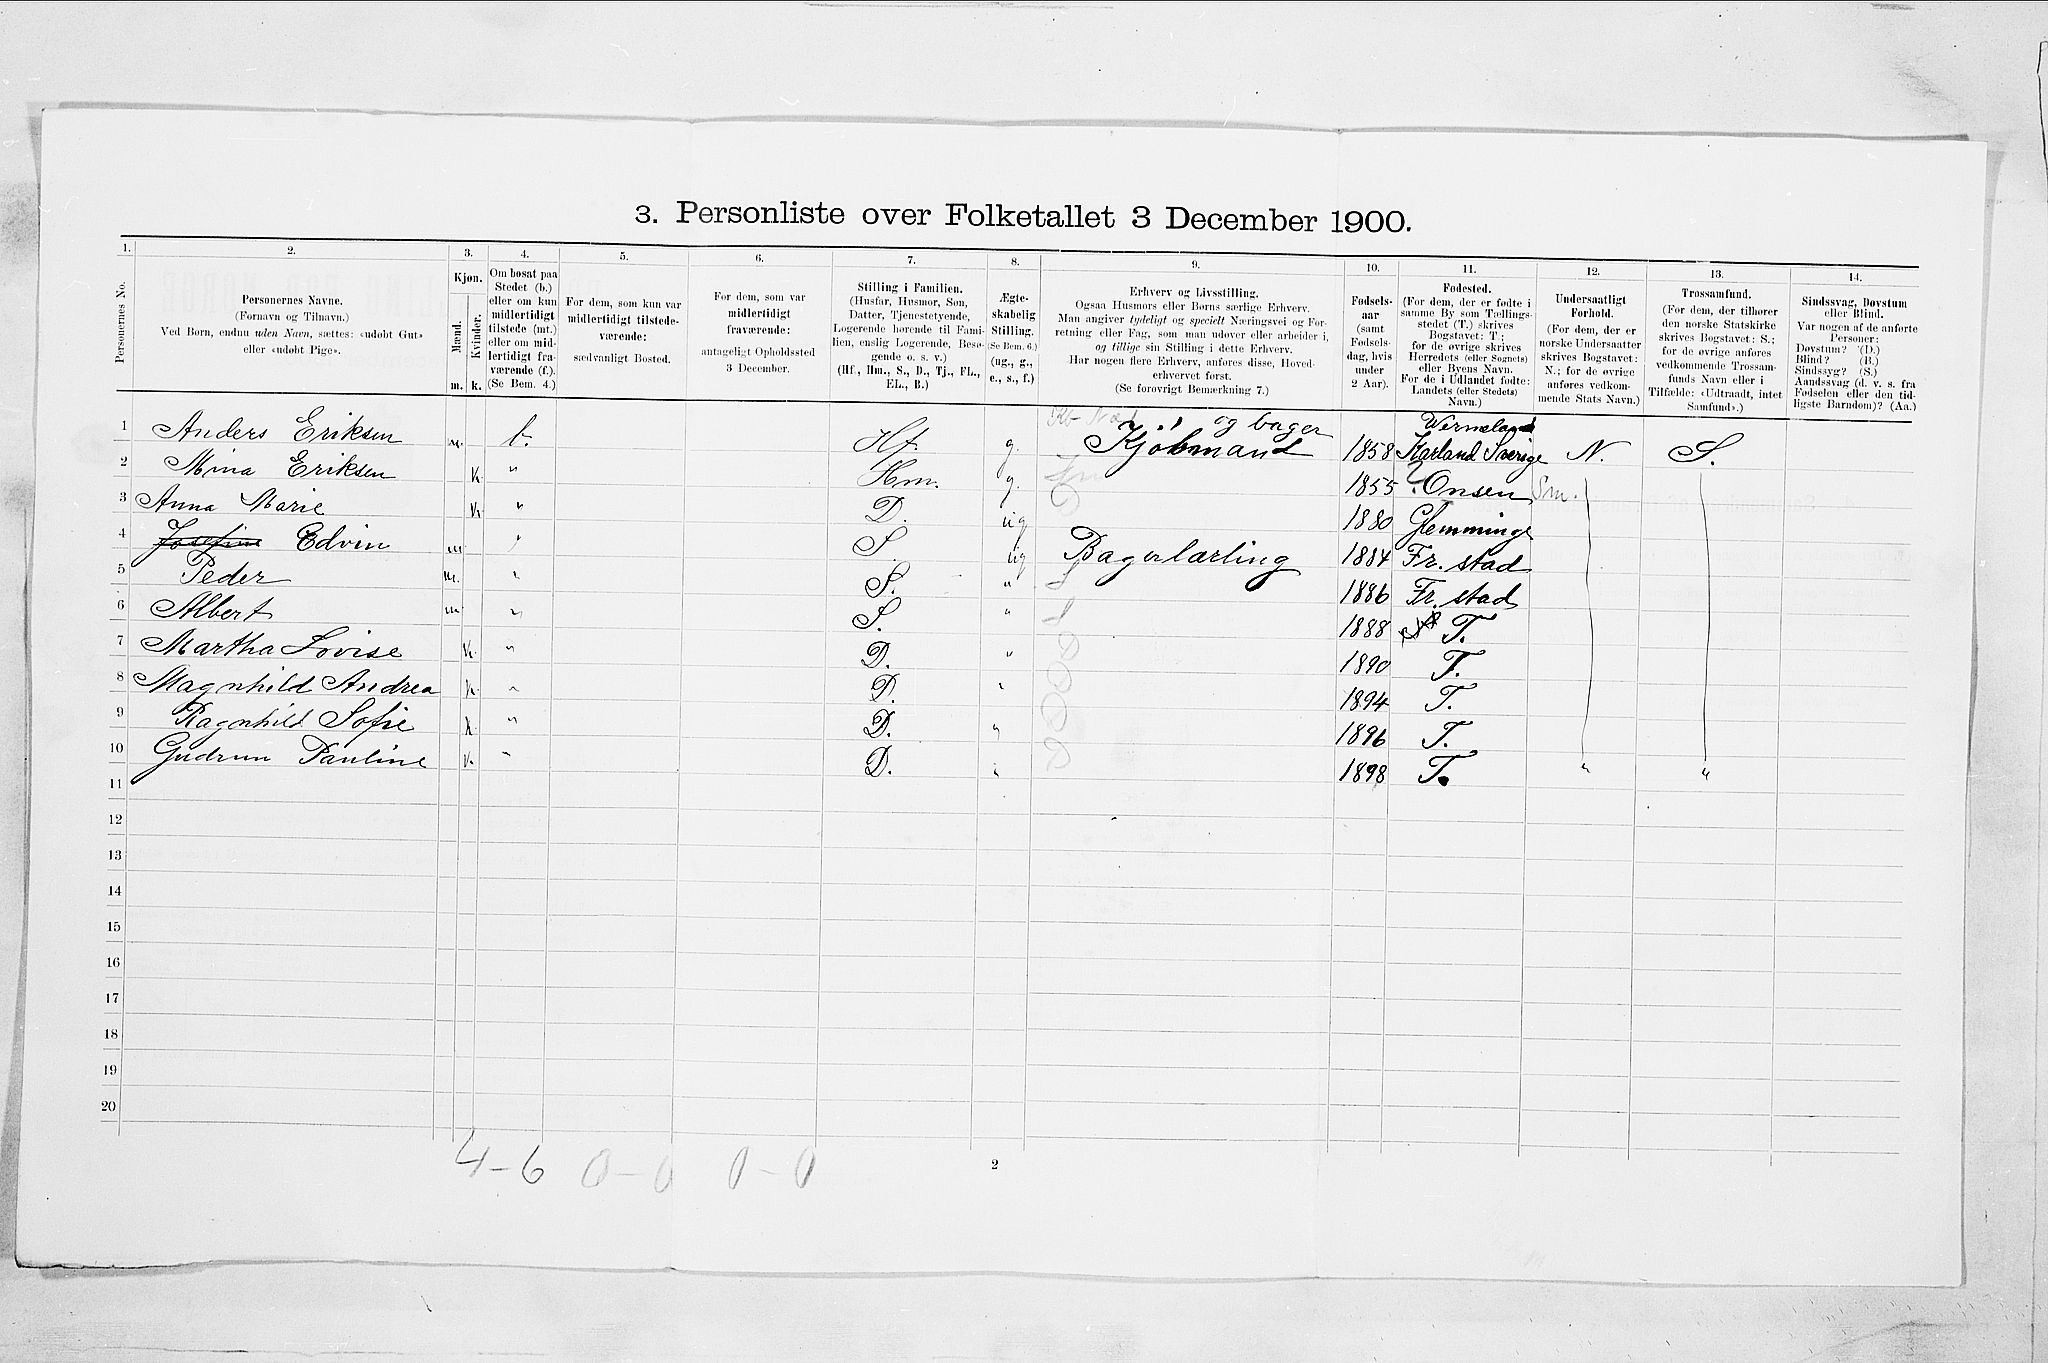 3. Personliste over Folketallet 3 December 1900.
1. 2. 3. 4. 5. 6. 7. 8. 9. 10. 11. 12. 13. 14.
Personernes No.
Personernes Navne.
(Fornavn og Tilnavn.)
Ved Børn, endnu uden Navn, sættes: «udøbt Gut»
eller «udøbt Pige».
Kjøn.
Mænd. Kvinder.
m. k.
Om bosat paa
Stedet (b.)
eller om kun
midlertidigt
tilstede (mt.)
eller om mid-
lertidigt fra-
værende (f.).
(Se Bem. 4.)
For dem, som kun var
midlertidigt tilstede-
værende:
sædvanligt Bosted.
For dem, som var
midlertidigt
fraværende:
antageligt Opholdssted
3 December.
Stilling i Familien.
(Husfar, Husmor, Søn,
Datter, Tjenestetyende,
Logerende hørende til Fami-
lien, enslig Logerende, Besø-
gende o. s. v.)
(Hf., Hm., S., D., Tj., FL.,
EL., B.)
Ægte-
skabelig
Stilling.
(Se Bem. 6.)
(ug., g.,
e., s., f.)
Erhverv og Livsstilling.
Ogsaa Husmors eller Børns særlige Erhverv.
Man angiver tydeligt og specielt Næringsvei og For-
retning eller Fag, som man udøver eller arbeider i,
og tillige sin Stilling i dette Erhverv.
Har nogen flere Erhverv, anføres disse, Hoved-
erhvervet først.
(Se forøvrigt Bemærkning 7.)
Fødsels-
aar
(samt
Fødsels-
dag, hvis
under
2 Aar).
Fødested.
(For dem, der er fødte i
samme By som Tællings-
stedet (T.) skrives
Bogstavet: T.;
for de øvrige skrives
Herredets (eller Sognets)
eller Byens Navn.
For de i Udlandet fødte:
Landets (eller Stedets)
Navn.)
Undersaatligt
Forhold.
(For dem, der er
norske Undersaatter
skrives Bogstavet:
N.; for de øvrige
anføres vedkom-
mende Stats Navn.)
Trossamfund.
(For dem, der tilhører
den norske Statskirke
skrives Bogstavet: S.;
for de øvrige anføres
vedkommende Trossam-
funds Navn eller i
Tilfælde: «Udtraadt, intet
Samfund».)
Sindssvag, Døvstum
eller Blind.
Var nogen af de anførte
Personer:
Døvstum? (D.)
Blind? (B.)
Sindssyg? (S.)
Aandssvag (d. v. s. fra
Fødselen eller den tid-
ligste Barndom)? (Aa.)
og bager Vermeland
1 Anders Eriksen m. b. Hf. g. Kjøbmand 1858 Karland Sverige N. S.
2 Mina Eriksen k. " Hm. g. 1855 Onsen Sm.
3 Anna Marie k. " D. ug 1880 Glemminge
4 Josefine Edvin m " S. ug Bagerlærling 1884 Fr. stad
5 Peder m. " S. " 1886 Fr. stad
6 Albert m " S. " 1888 T.
7 Martha Lovise k. " D. " 1890 T.
8 Magnhild Andrea k. " D. " 1894 T.
9 Ragnhild Sofie k. " D. " 1896 T.
10 Gudrun Pauline k. " D. " 1898 T. " "
11
12
13
14
15
16
17
18
19
20
4-6 0-0 0-0
2